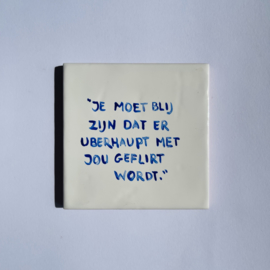 "JE MOET BLIJ
ZIJN DAT ER
UBERHAUPT MET
JOU GEFLIRT
WORDT."